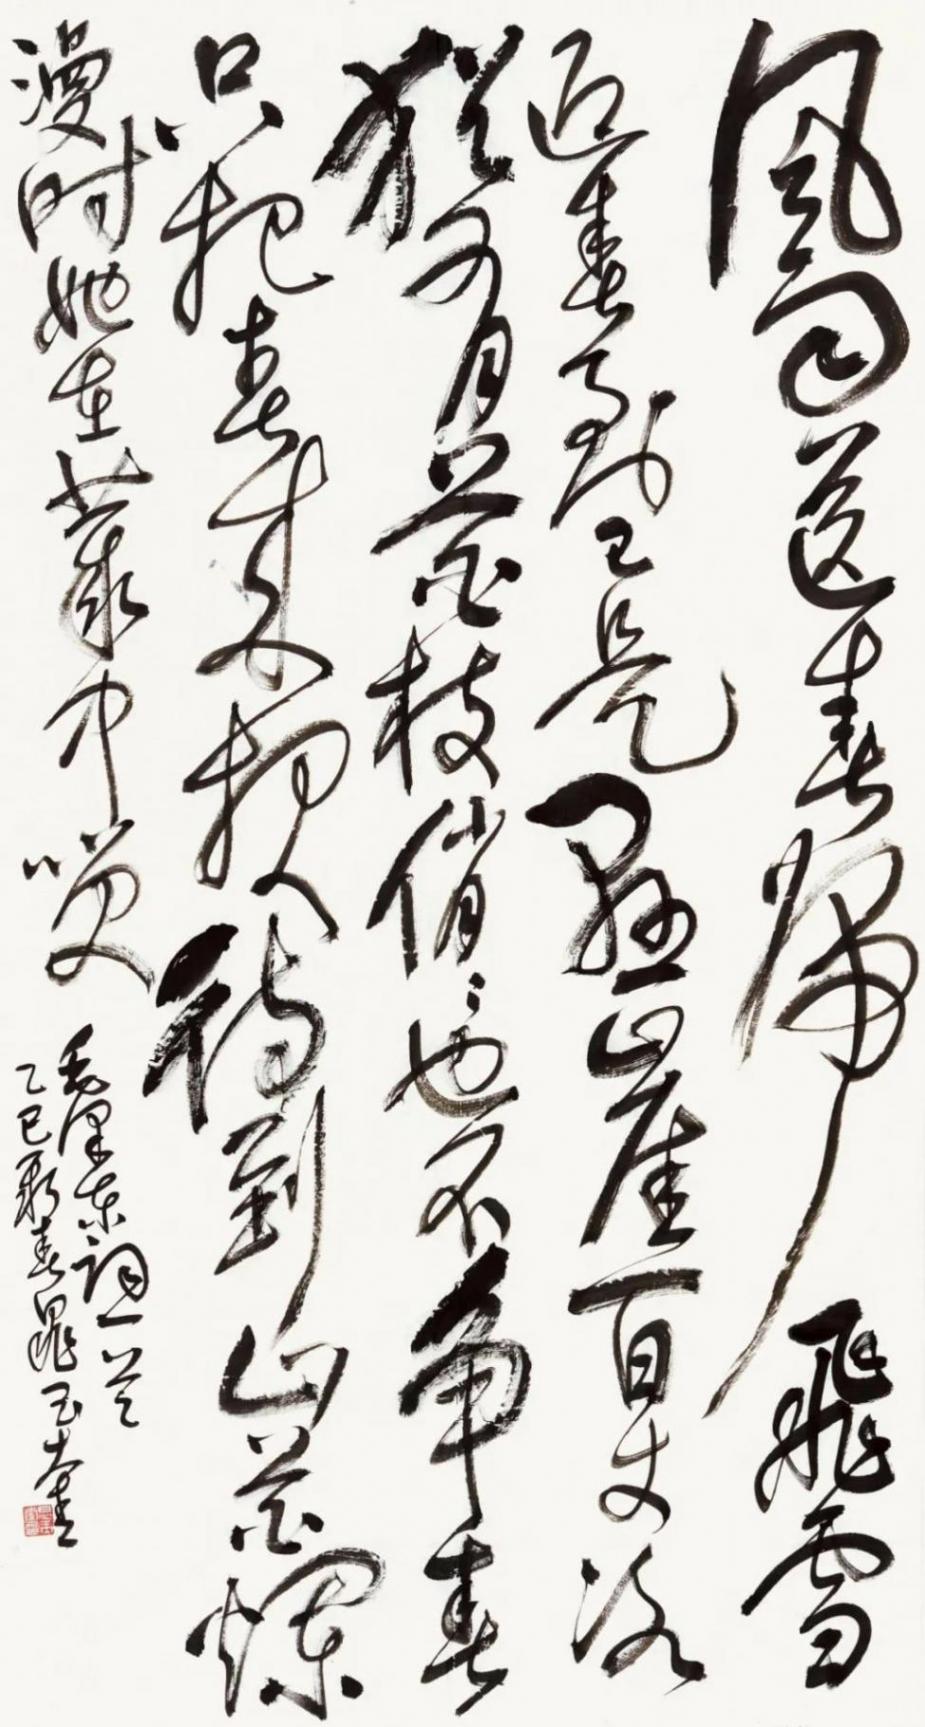 風雨送春歸飛雪
迎春到已是懸崖百丈冰
猶有花枝俏〻也不爭春
只把春來報待到山花爛
漫時她在叢中笑
毛澤東詞一首
乙巳新春晁玉奎